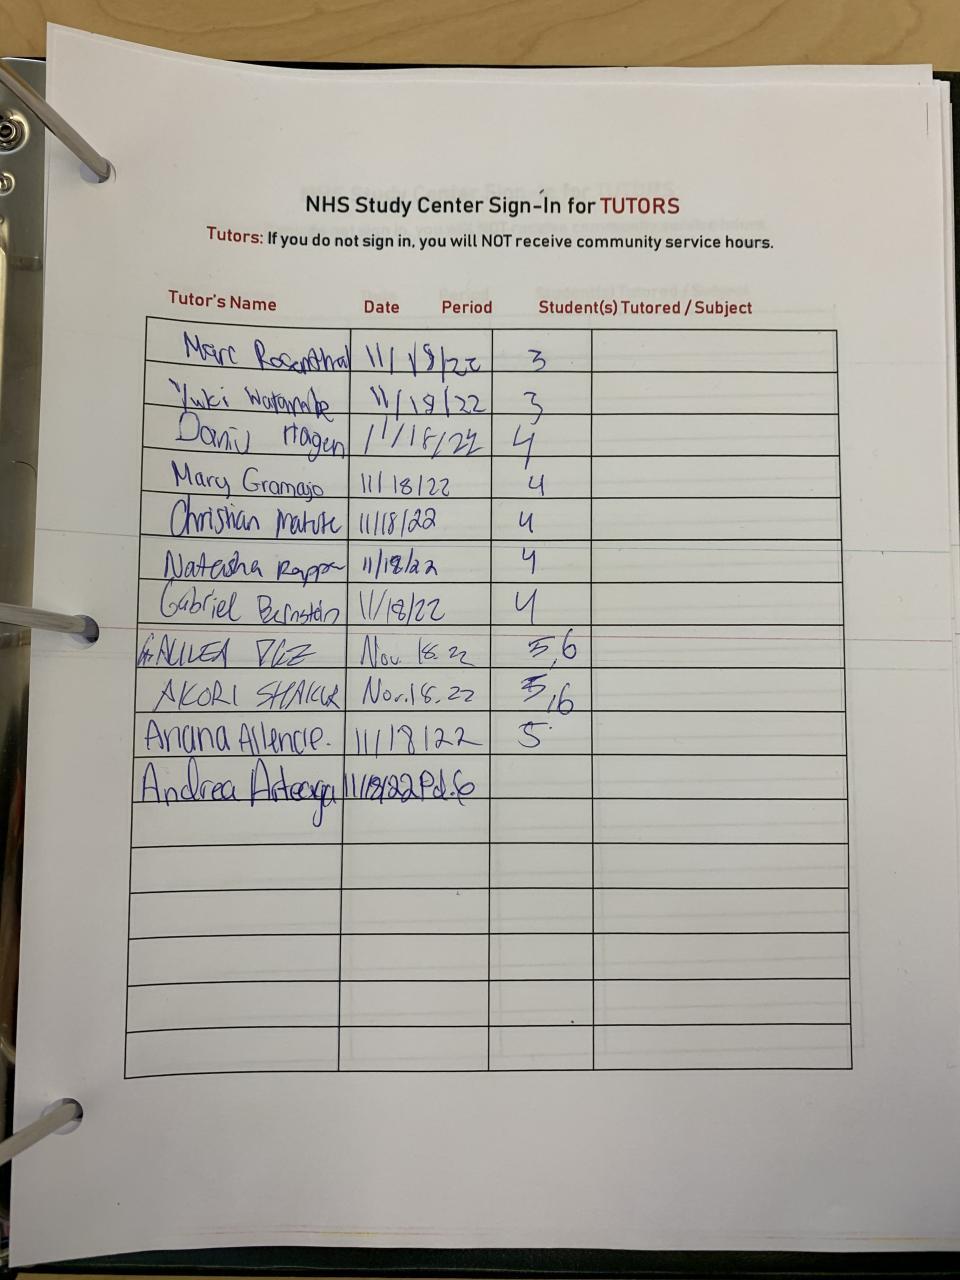 NHS Study Center Sign-In for TUTORS
Tutors: If you do not sign in, you will NOT receive community service hours.
Tutor's Name Date Period Student(s) Tutored / Subject
Marc Rosenthal 11/18/22 3
Yuki Watanabe 11/18/22 3
Hagen 11/18/22 4
Mary Gramajo 11/18/22 4
Christian Matute 11/18/22 4
Natasha 11/18/22 4
Gabriel Bernstein 11/18/22 4
GALILEA Nov. 18. 22 5,6
AKORI SHAKUR Nov. 18. 22 5,6
Ariana 11/18/22 5
Andrea Arteaga 11/18/22 Pd. 6